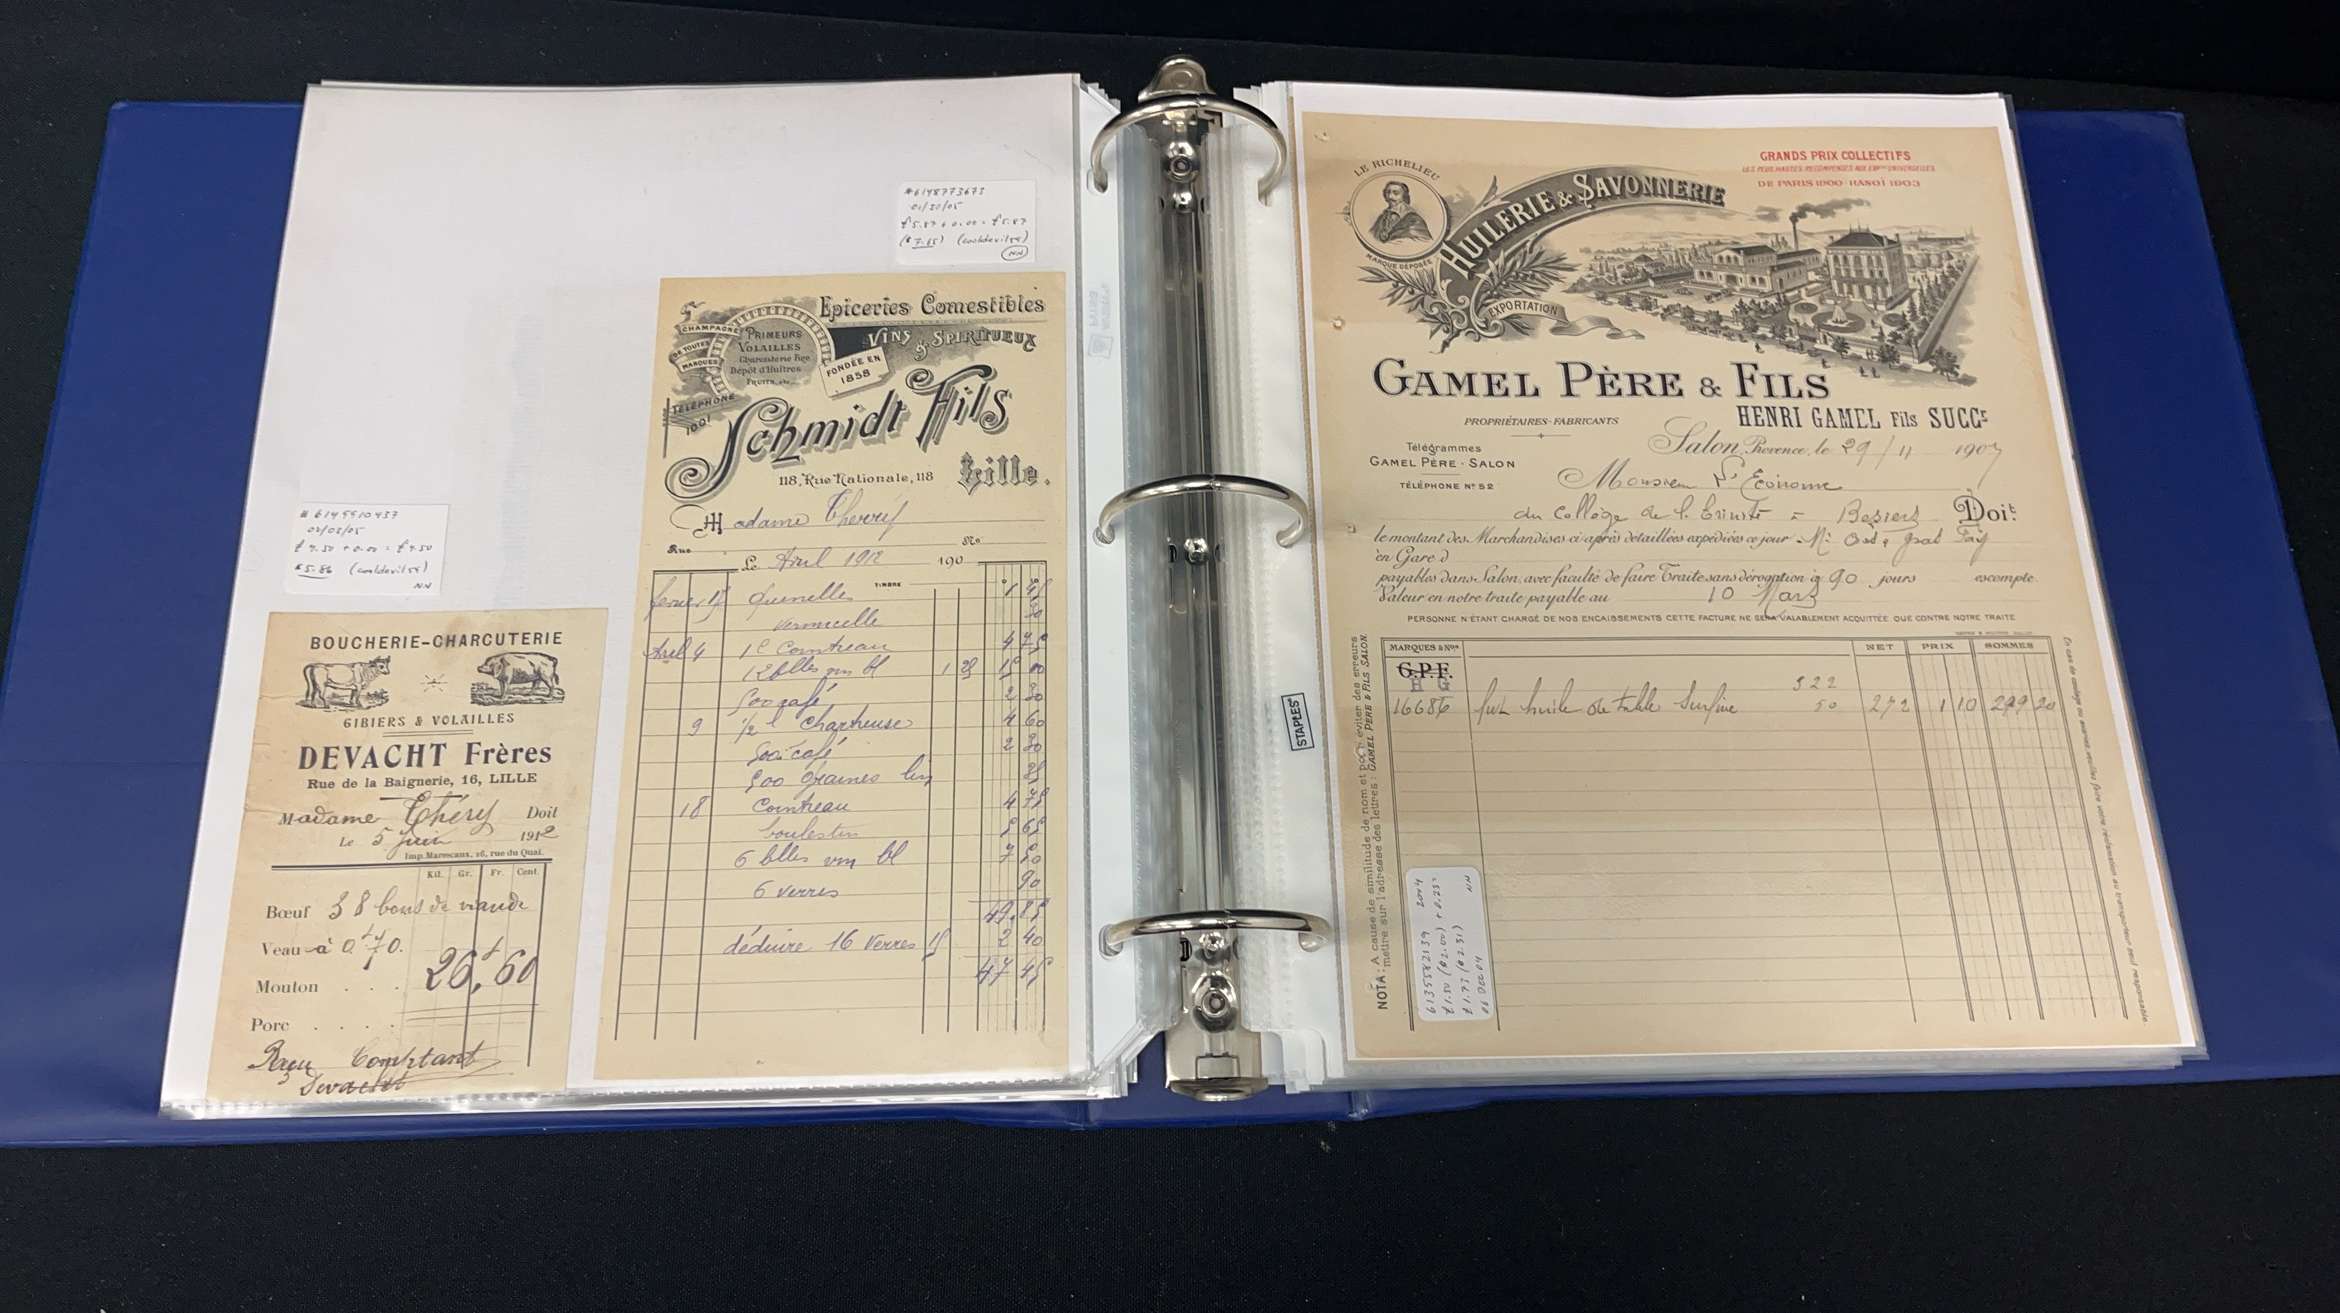 #6148773673
01/30/05
£5.87 + 0.00 = £5.87
($7.65) (cooldevil54)
NN
#6149910437
02/03/05
£4.50 + 0.00 = £4.50
$5.86 (cooldevil54)
NN
BOUCHERIE-CHARCUTERIE
GIBIERS & VOLAILLES
DEVACHT Frères
Rue de la Baignerie, 16, LILLE
Madame Théry Doit
Le 5 Juin 1912
Imp. Marescaux, 26, rue du Quai.
Kil. Gr. Fr. Cent.
Bœuf 38 bons de viande
Veau à 0f70.
Mouton . . . 26f60
Porc . . . .
Reçu Comptant
Devacht
Epiceries Comestibles
VINS & SPIRITUEUX
CHAMPAGNE
DE TOUTES
MARQUES
PRIMEURS
VOLAILLES
Charcuterie Fine
Dépôt d'Huîtres
FRUITS, etc...
FONDÉE EN
1858
TÉLÉPHONE
1001
Schmidt Fils
118, Rue Nationale, 118 Lille.
Madame
Rue No
Le Avril 1912 190
TIMBRE
février 17 quenelles 1 45
vermicelle
Avril 4 1 l Cointreau 4 75
12 blles vin bl 1 25 15 00
500 café 2 30
9 1/2 l Chartreuse 4 60
500 café 2 30
500 graines lin
18 Cointreau 4 75
5 65
6 blles vin bl 7 50
6 verres 90
49.85
déduire 16 verres 15 2 40
47 45
STAPLES
LE RICHELIEU
MARQUE DÉPOSÉE
HUILERIE & SAVONNERIE
EXPORTATION
GRANDS PRIX COLLECTIFS
LES PLUS HAUTES RÉCOMPENSES AUX EXPons UNIVERSELLES
DE PARIS 1900 - HANOÏ 1903
GAMEL PÈRE & FILS
HENRI GAMEL Fils SUCCr
PROPRIÉTAIRES-FABRICANTS
Télégrammes
GAMEL PÈRE - SALON
TÉLÉPHONE No 52
Salon, Provence, le 29/11 1907
Monsieur l'Econome
du Collège de l. Trinité = Beziers Doit
le montant des Marchandises ci-après détaillées expédiées ce jour
en Gare d
payables dans Salon, avec faculté de faire Traite sans dérogation à 90 jours escompte.
Valeur en notre traite payable au 10 Mars
PERSONNE N'ÉTANT CHARGÉ DE NOS ENCAISSEMENTS CETTE FACTURE NE SERA VALABLEMENT ACQUITTÉE QUE CONTRE NOTRE TRAITE
MARQUES & Nos NET PRIX SOMMES
G.P.F.
H G
322
16686 fut huile de table Surfine 50 272 1 10 299 20
NOTA: A cause de similitude de nom et pour éviter des erreurs
mettre sur l'adresse des lettres: GAMEL PÈRE & FILS SALON.
6135582139 2004
£1.50 ($2.00) + 0.23 =
£1.73 ($2.31) NN
06 DEC 04